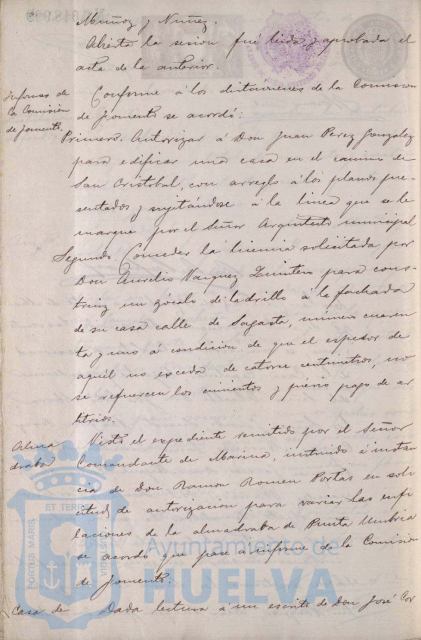 Muñoz y Nuñez.
Abierta la sesion fué leida y aprobada el
acta de la anterior.
Informes de
la Comisión
de fomento.
Conforme á los dictamenes de la Comision
de fomento se acordó:
Primero. Autorizar á Don Juan Perez Gonzalez
para edificar una casa en el camino de
San Cristobal, con arreglo á los planos pre-
sentados y sugetándose á la linea que se le
marque por el Señor Arquitecto municipal
Segundo. Conceder la licencia solicitada por
Don Aurelio Vazquez Zuintero para cons-
truir un zócalo de ladrillo á la fachada
de su casa calle de Sagasta, número cuaren-
ta y uno á condición de que el espesor de
aquél no exceda de catorce centimetros, no
se refuercen los cimientos y previo pago de ar-
bitrios.
Almadraba
Visto el expediente remitido por el Señor
Comandante de Marina, instruido á instan-
cia de Don Ramon Romeu Portas en soli-
citud de autorización para variar las enfi-
laciones de la almadraba de Punta Umbria
se acordó que pase á informe de la Comisión
de fomento.
Casa de
Dada lectura á un escrito de Don José Cor
Ayuntamiento de
HUELVA
PORTUS MARIS
ET TERRE